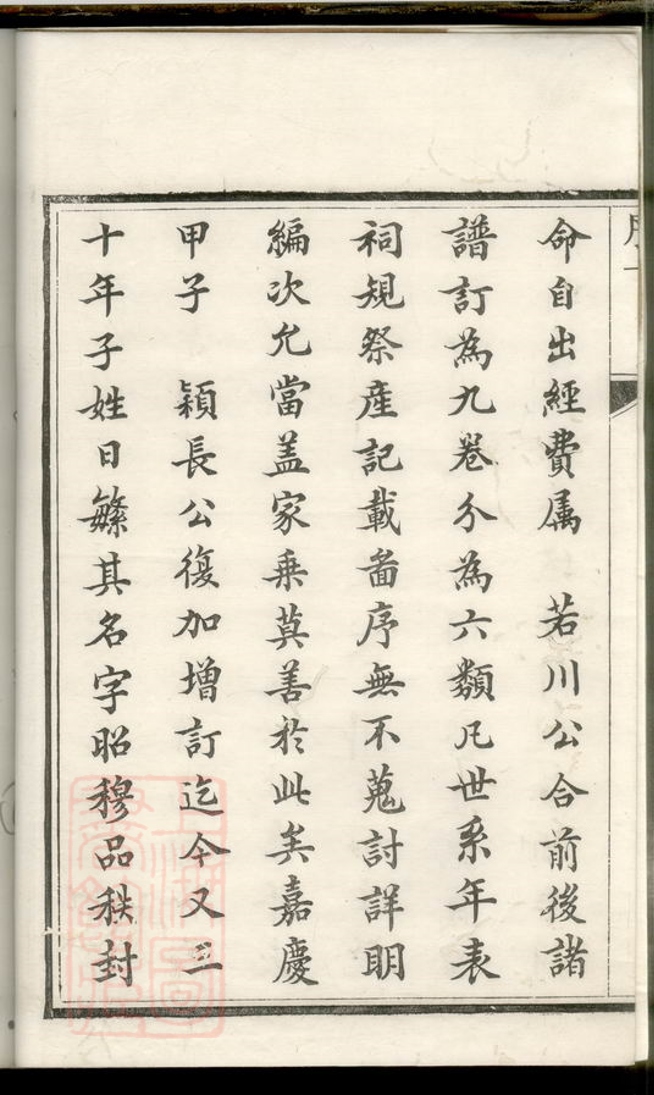 命自出經費属　若川公合前後諸
譜訂為九卷分為六類凡世系年表
祠規祭産記載啚序無不蒐討詳明
編次允當盖家乗莫善於此矣嘉慶
甲子　穎長公復加增訂迄今又三
十年子姓日繁其名字昭穆品秩封